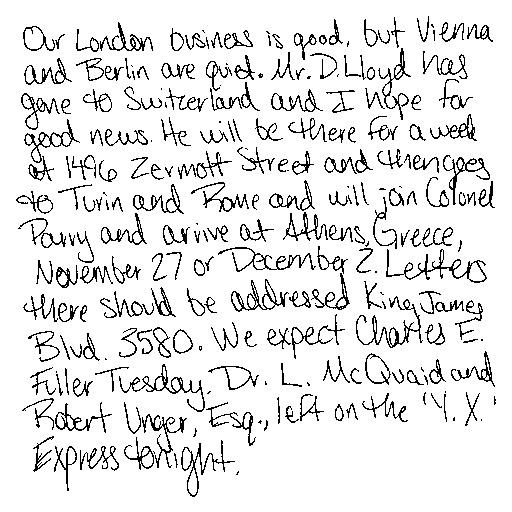 Our London business is good, but Vienna
and Berlin are quiet. Mr. D. Lloyd has
gone to Switzerland and I hope for
good news. He will be there for a week
at 1496 Zermott Street and then goes
to Turin and Rome and will join Colonel
Parry and arrive at Athens, Greece,
November 27 or December 2. Letters
there should be addressed King James
Blvd. 3580. We expect Charles E.
Fuller Tuesday. Dr. L. McQuaid and
Robert Unger, Esq., left on the 'Y. X.'
Express tonight.